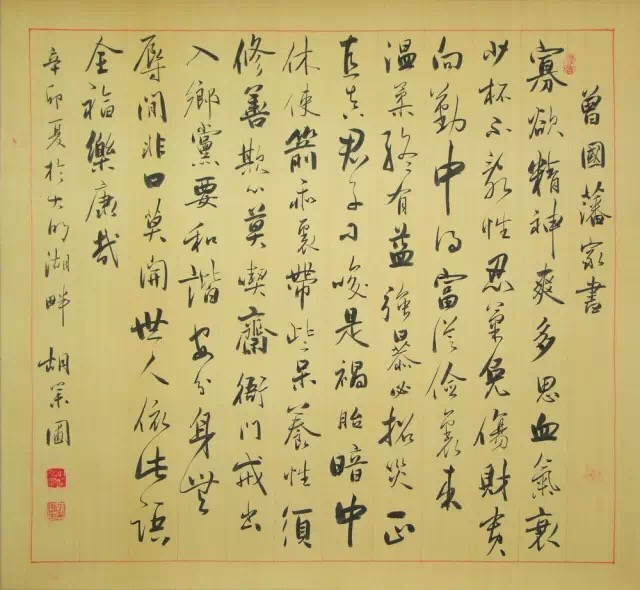 曾國藩家書
寡欲精神爽多思血氣衰
少杯不亂性忍氣免傷財貴
自勤中得富從儉裏來
溫柔終有益強暴必招災正
直真君子刁唆是禍胎暗中
休使箭乖裏帶些呆養性須
修善欺心莫喫齋衙門戒出
入鄉黨要和諧安分身無
辱閒非口莫開世人依此語
全福樂康哉
辛卯夏於大明湖畔 胡